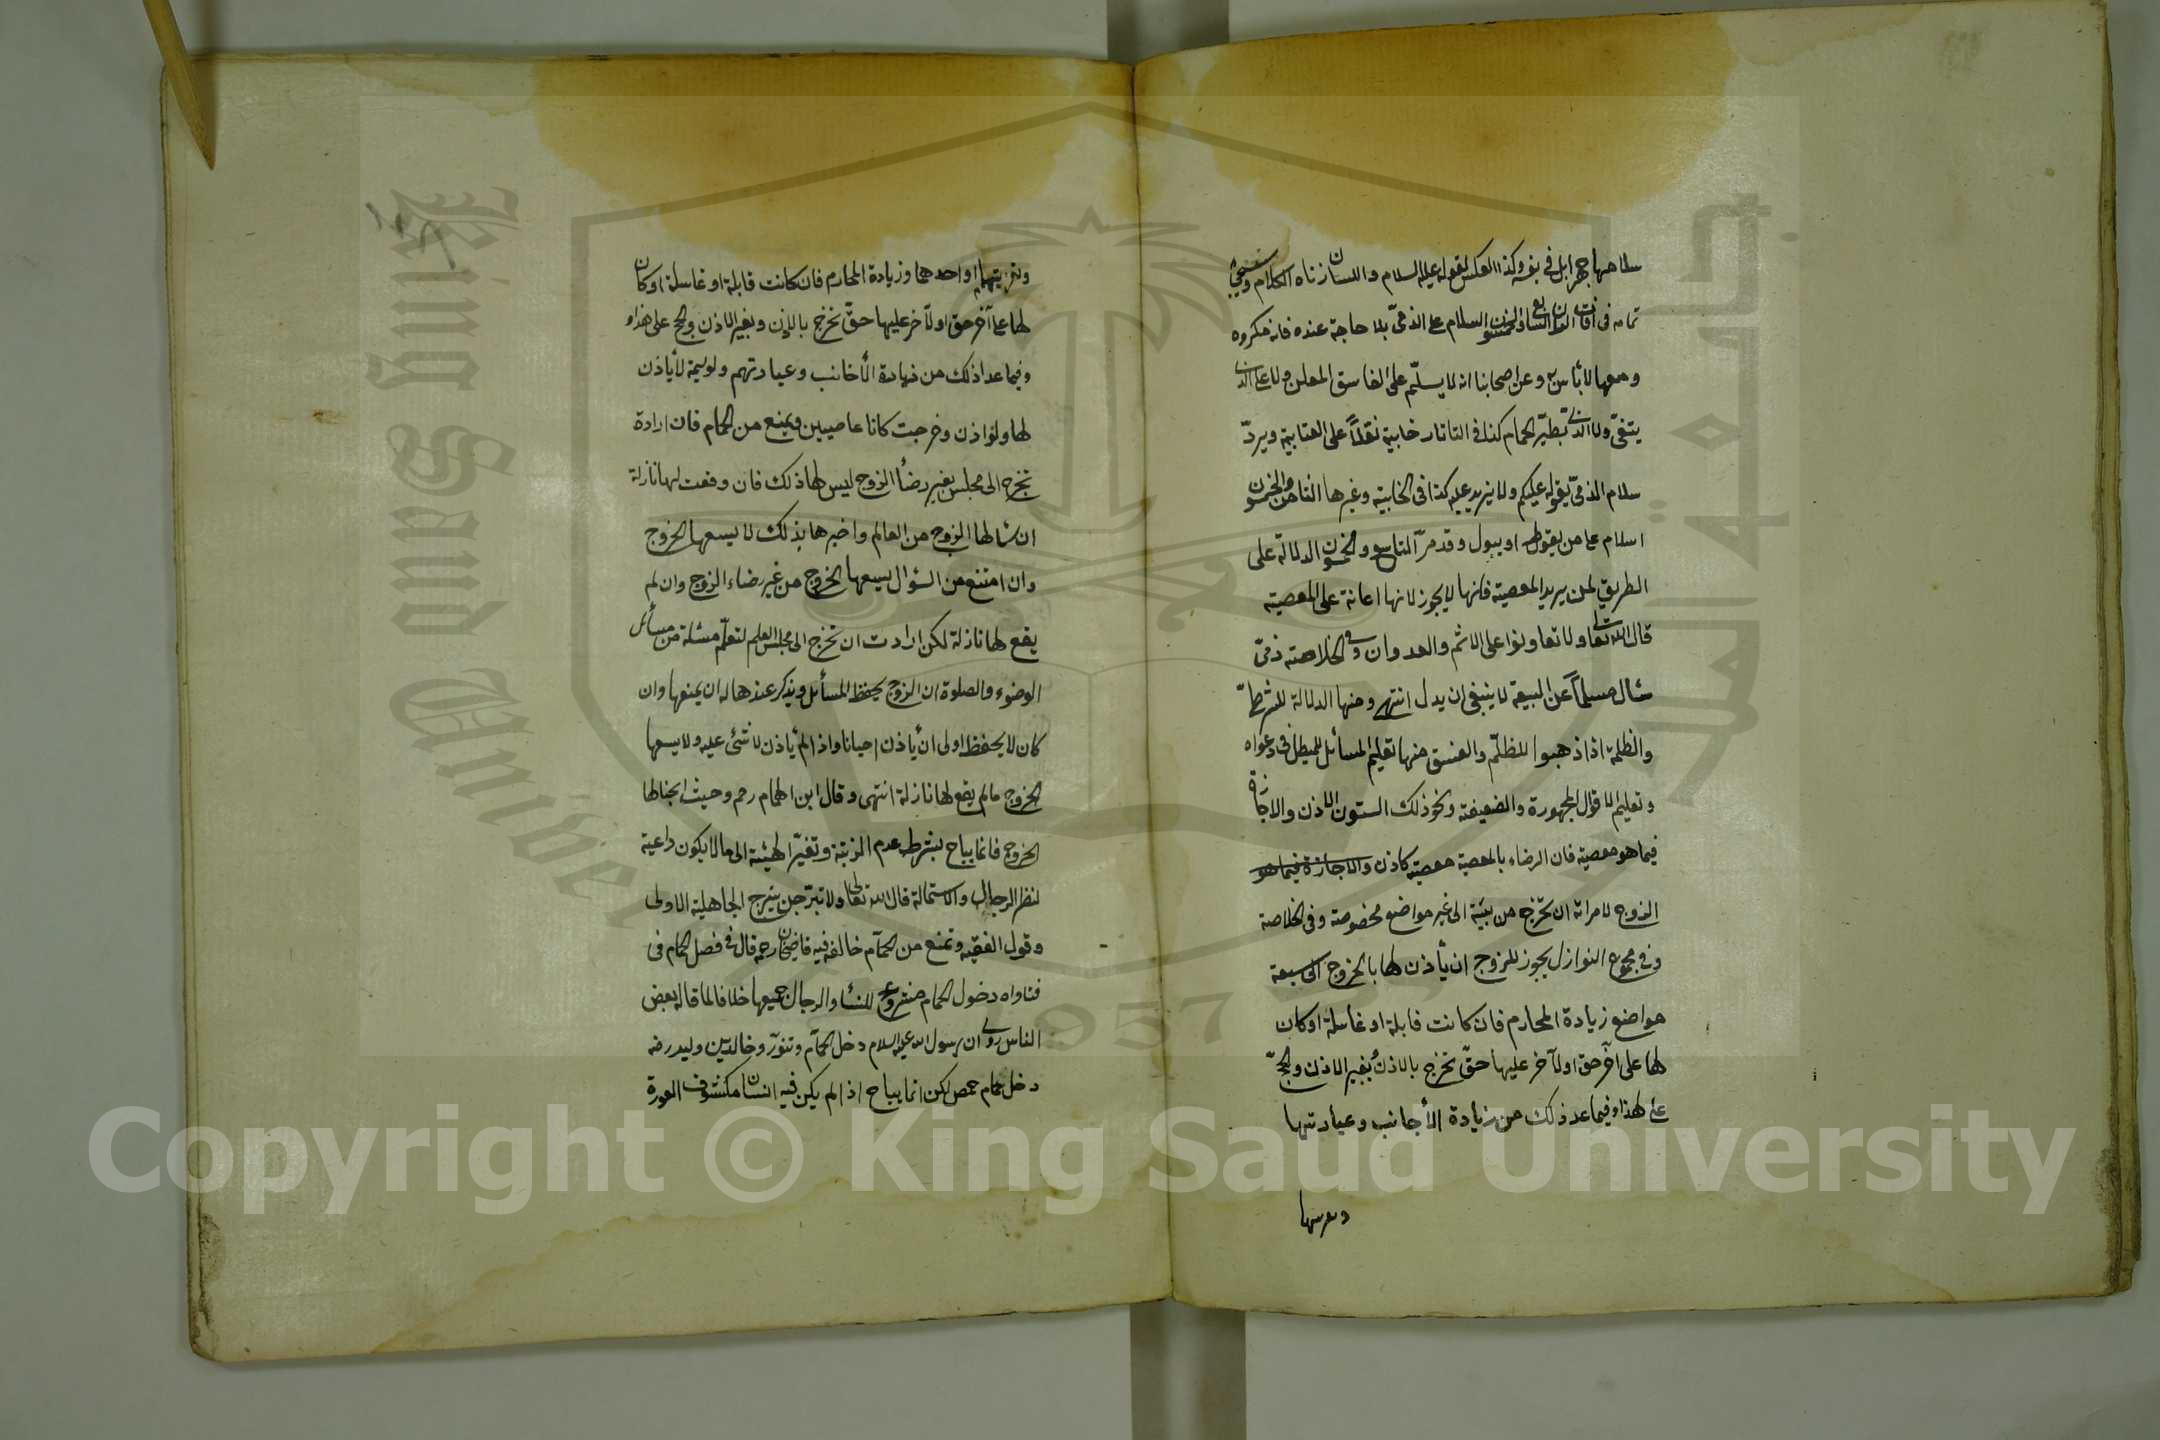 سلامها جهرا بل في نفسه وكذا العكس لقوله عليه السلام واللسان زناه الكلام وسيجئ
تمامه في آفات الاذن السابع والخمسون السلام على الذمي بلا حاجة عنده فانه مكروه
ومعها لا بأس به وعن اصحابنا انه لا يسلّم على الفاسق المعلن ولا على الذي
يتغنى ولا الذي يطيّر الحمام كذا في التاتارخانية نقلاً على العتابية ويردّ
سلام الذمي بقوله عليكم ولا يزيد عليه كذا في الخانية وغيرها الثامن والخمسون
اسلام على من يتغوط او يبول وقد مرّ التاسع والخمسون الدلالة على
الطريق لمن يريد المعصية فانها لا يجوز لانها اعانة على المعصية
قال الله تعالى ولا تعاونوا على الاثم والعدوان وفي الخلاصة ذمّي
سئال مسلماً عن البيعة لا ينبغي ان يدل انتهى ومنها الدلالة للشرطيّ
والظلمة اذا ذهبوا للظلم والفسق منها تعليم المسائل للمبطل في دعواه
وتعليم الاقوال المهجورة والضعيفة ونحو ذلك الستون الاذن والاجازة
فيما هو معصية فان الرضاء بالمعصية معصية كاذن والاجازة فيما هو
الزوج لامراته ان تخرج من بيته الى غير مواضع مخصوصة وفي الخلاصة
وفي مجموع النوازل يجوز للزوج ان يأذن لها بالخروج الى سبعة
مواضع زيادة المحارم فان كانت قابلة او غاسلة او كان
لها على آخر حق او لآخر عليها حقّ تخرج بالاذن بغير الاذن والحجّ
على هذا وفيما عد ذلك من زيادة الأجانب وعيادتها
وتعزيتهما او احدهما وزيادة المحارم فان كانت قابلة او غاسلة او كان
لها على آخر حق او لآخر عليها حقّ تخرج بالاذن وبغير الاذن والحج على هذا
وفيما عدا ذلك من زيادة الأجانب وعيادتهم ولوليمة لا يأذن
لها ولو اذن وخرجت كانا عاصيين ويمنع من الحمام فان ارادة
تخرج الى مجلس بغير رضأ الزوج ليس لها ذلك فان وقعت لها نازلة
ان سأل لها الزوج من العالم واخبرها بذلك لا يسعها الخروج
وان امتنع من السؤال يسعها الخروج من غير رضاء الزوج وان لم
يقع لها نازلة لكن ارادت ان تخرج الى مجلس العلم لتعلّم مسئلة من مسائل
الوضوء والصلوة ان الزوج يحفظ المسائل ويذكر عندها له ان يمنعها وان
كان لا يحفظ اولى ان يأذن احيانا واذا لم يأذن لا شئ عليه ولا يسعها
الخروج ما لم يقع لها نازلة انتهى وقال ابن الهمام رحم وحيث ابحنا لها
الخروج فانما يباح بشرط عدم الزينة وتغيّر الهيئة الى ما لا يكون داعية
لنظر الرجال والاستمالة قال الله تعالى ولا تبرّجن تبرج الجاهلية الاولى
وقول الفقيه وتمنع من الحمام خالفه فيه قاضيخان رحمه قال في فصل الحمام في
فتاواه دخول الحمام مشروع للنساء والرجال جميعها خلافا لما قاله بعض
الناس روى ان رسول الله عليه السلام دخل الحمام وتنوّر وخالد بن وليد رضه
دخل حمام حمص لكن انما يباح اذا لم يكن فيه انسان مكشوف العورة
Copyright © King Saud University
1957